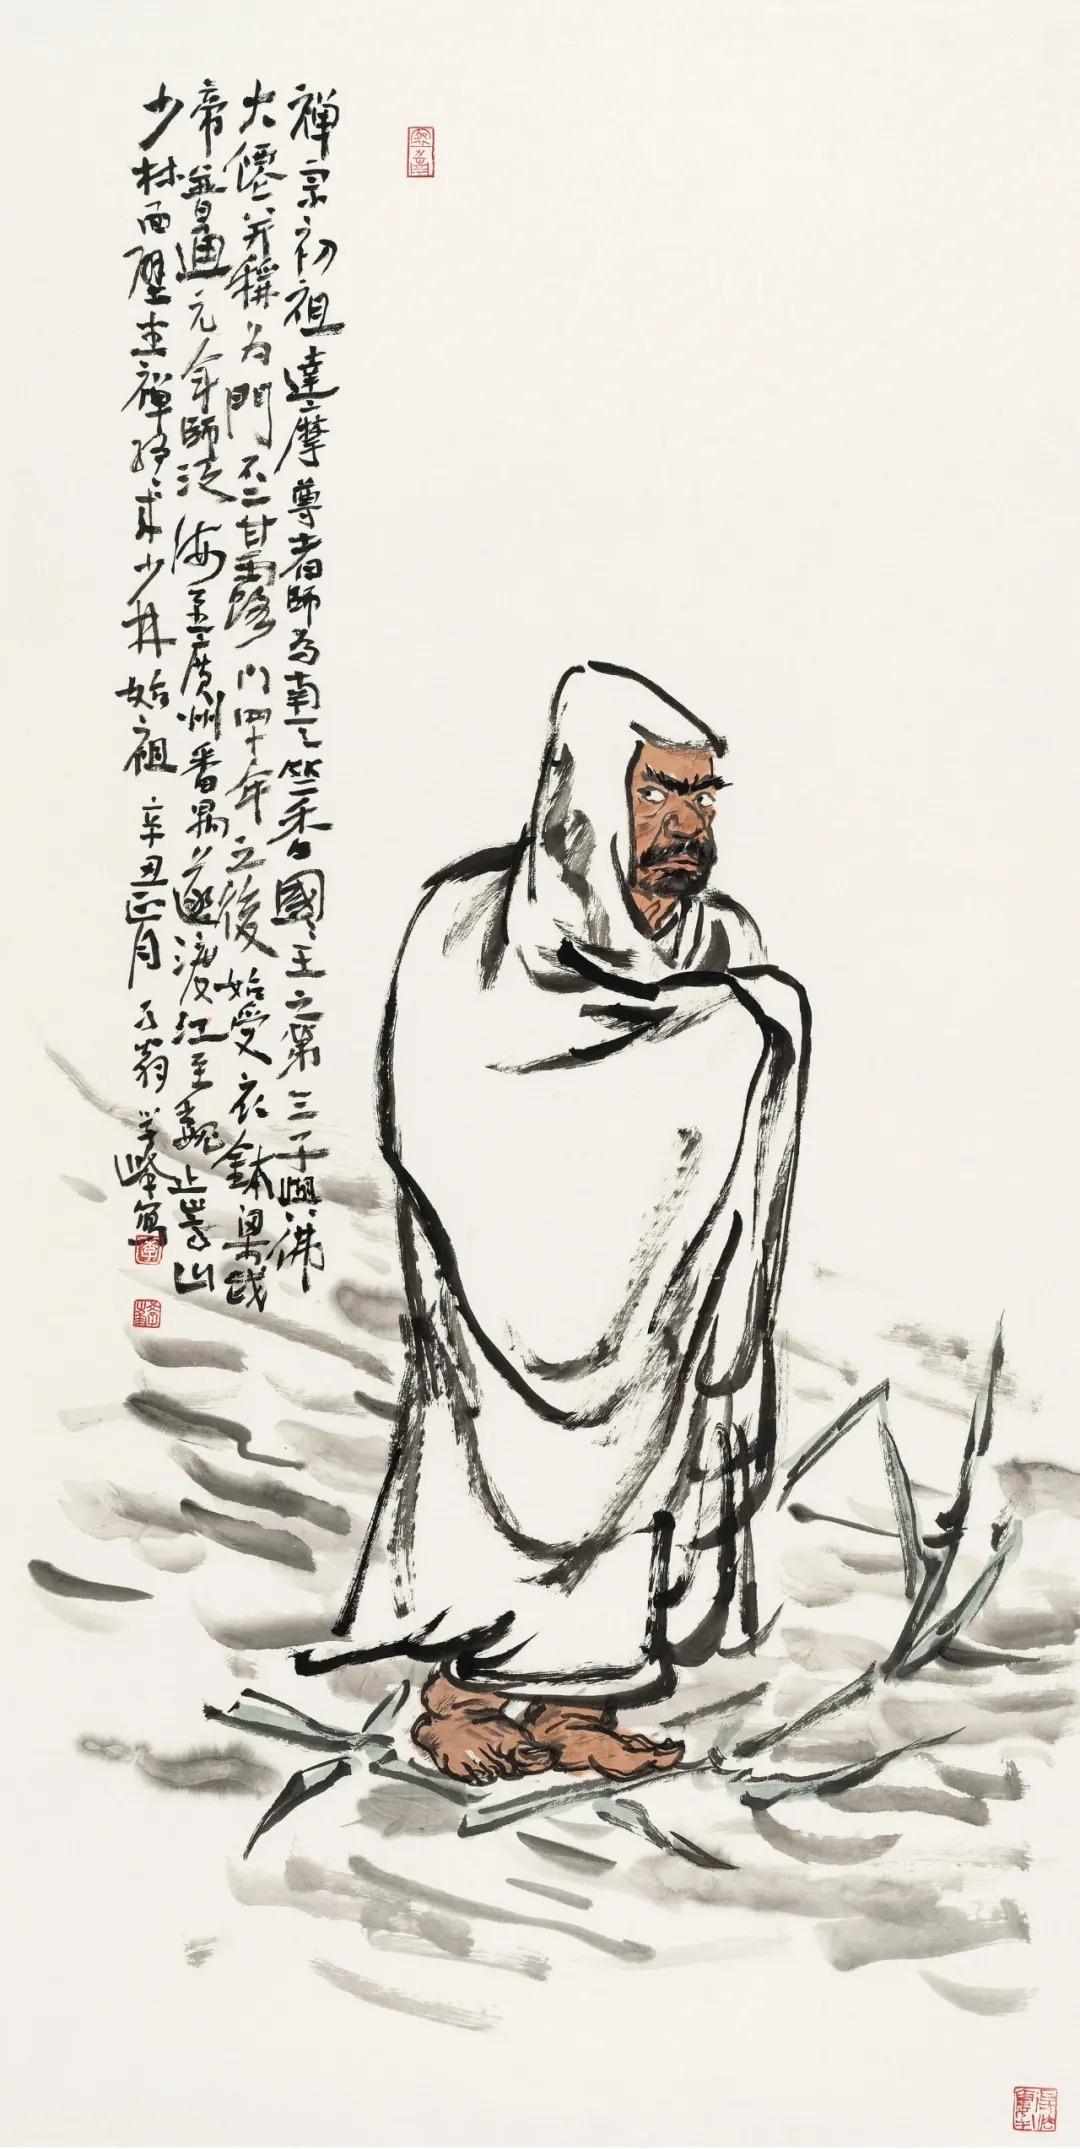 禪宗初祖達摩尊者師为南天竺香國王之第三子與佛
大僊并稱为門不二甘露門四十年之後始受衣鉢梁武
帝普通元年師泛海至廣州番禺遂渡江至魏止嵩山
少林面壁坐禪終成少林始祖 辛丑正月 翁学峰寫